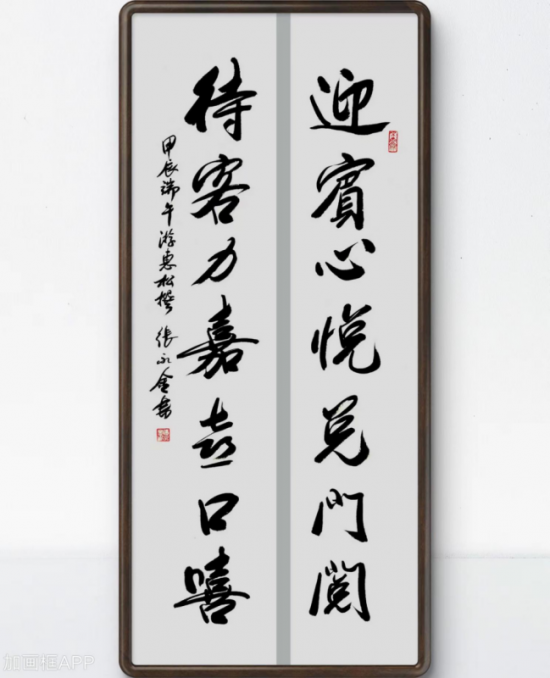 迎賓心悦兑門閲
待客力嘉喜口嘻
甲辰端午游惠松撰 張永金書
加画框APP